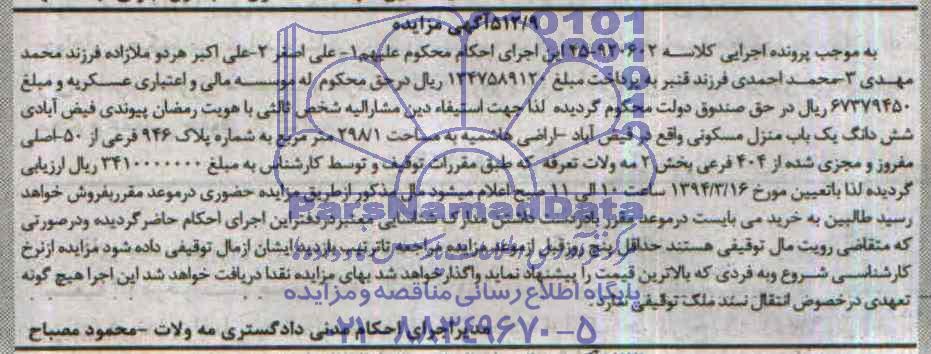 ۵۱۲/۹آگهی مزایده
به موجب پرونده اجرایی کلاسه ۹۲۰۶۰۲-۲۵ این اجرای احکام محکوم علیهم ۱- علی اصغر ۲-علی اکبر هردو ملازاده فرزند محمد
مهدی ۳-محمد احمدی فرزند قنبر به پرداخت مبلغ ۱۳۴۷۵۸۹۱۲۰ ریال درحق محکوم له موسسه مالی و اعتباری عسکریه و مبلغ
۶۷۳۷۹۴۵۰ ریال در حق صندوق دولت محکوم گردیده لذا جهت استیفاء دین مشارالیه شخص ثالثی با هویت رمضان پیوندی فیض آبادی
شش دانگ یک باب منزل مسکونی واقع در فیض آباد -اراضی هاشمیه به مساحت ۲۹۸/۱ متر مربع به شماره پلاک ۹۴۶ فرعی از ۵۰-اصلی
مفروز و مجزی شده از ۴۰۴ فرعی بخش ۲ مه ولات تعرفه که طبق مقررات توقیف و توسط کارشناس به مبلغ ۳۴۱۰۰۰۰۰۰۰ ریال ارزیابی
گردیده لذا باتعیین مورخ ۱۳۹۴/۳/۱۶ ساعت ۱۰ الی ۱۱ صبح اعلام میشود مال مذکور ازطریق مزایده حضوری درموعد مقرربفروش خواهد
رسید طالبین به خرید می بایست درموعد مقرر بادردست داشتن مدارک شناسایی معتبر دردفتر این اجرای احکام حاضرگردیده ودرصورتی
که متقاضی رویت مال توقیفی هستند حداقل پنج روزقبل ازموعد مزایده مراجعه تاترتیب بازدید ایشان ازمال توقیفی داده شود مزایده ازنرخ
کارشناسی شروع وبه فردی که بالاترین قیمت را پیشنهاد نماید واگذارخواهد شد بهای مزایده نقدا دریافت خواهد شد این اجرا هیچ گونه
تعهدی درخصوص انتقال سند ملک توقیفی ندارد.
مدیراجرای احکام مدنی دادگستری مه ولات -محمود مصباح
ParsNamadData
پایگاه اطلاع رسانی مناقصه و مزایده
۰۲۱-۸۸۳۴۹۶۷۰-۵